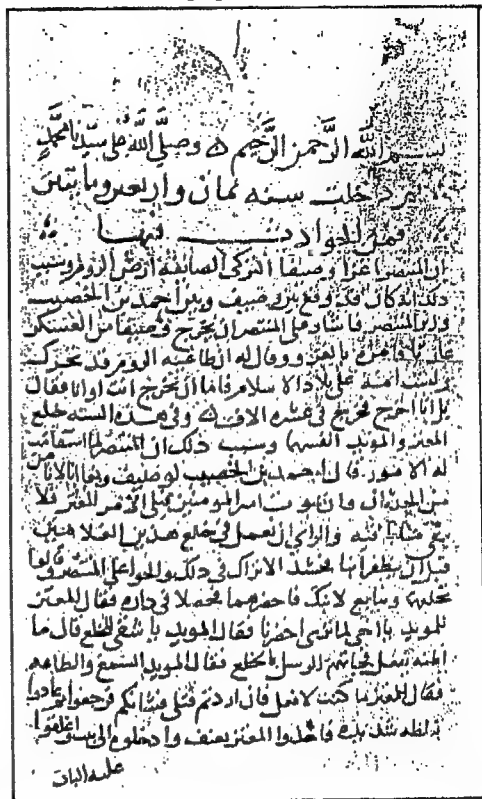 بسم الله الرحمن الرحيم ۞ وصلى الله على سيدنا محمد
ثم دخلت سنة ثمان واربعين ومايتين
فمن الحوادث فيها
ان المنتصر اغزا وصيفا التركي الصائفة ارض الروم وسبب
ذلك انه كان قد وقع بين وصيف وبين احمد بن الخصيب
وزير المنتصر فاشار على المنتصر ان يخرج وصيفا من العسكر
غازيا فامره بالغزو وقال له ان طاغية الروم قد تحرك
ولست آمنه على بلاد الاسلام فاما ان تخرج انت او انا فقال
بل انا اخرج فخرج في عشرة الاف ۞ وفي هذه السنة خلع
المعتز والمويد انفسهما وسبب ذلك ان المنتصر لما استقامت
له الامور قال احمد بن الخصيب لوصيف وبغا انا لا نامن
من الحدثان وان يموت امير المومنين فيلي الامر المعتز فلا
يبقي منا باقية والراي ان نعمل في خلع هذين الغلامين
قبل ان يظفرا بنا فجد الاتراك في ذلك والحوا على المنتصر وقالوا
نخلعهما ونبايع لابنك فاحضرهما فجعلا في دار فقال المعتز
للمويد يا اخي لم احضرنا فقال المويد يا شقي للخلع قال ما
اظنه يفعل فجاتهم الرسل بالخلع فقال المويد السمع والطاعه
فقال المعتز ما كنت لافعل فان اردتم قتلي فشانكم فرجعوا ثم عادوا
بغلظه شديده فاخذوا المعتز بعنف وادخلوه الى بيت واغلقوا
عليه الباب